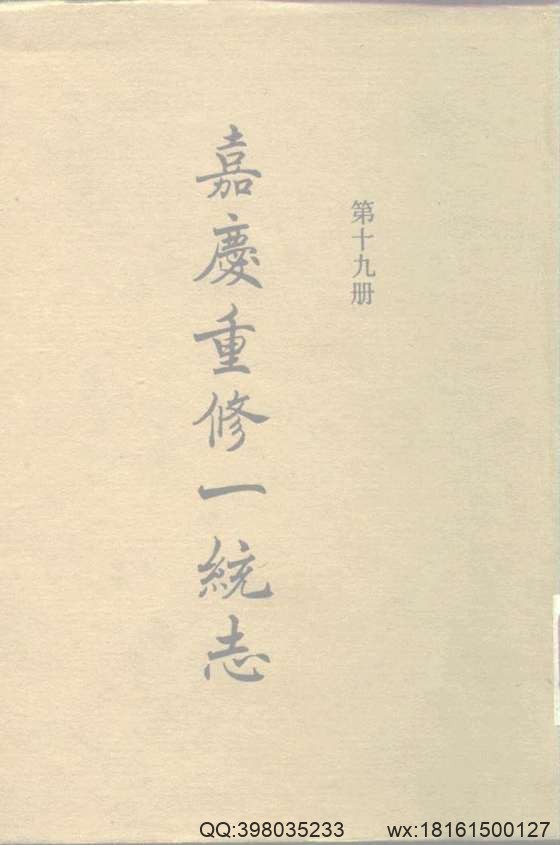 第十九册
嘉慶重修一統志
QQ:398035233 wx:18161500127